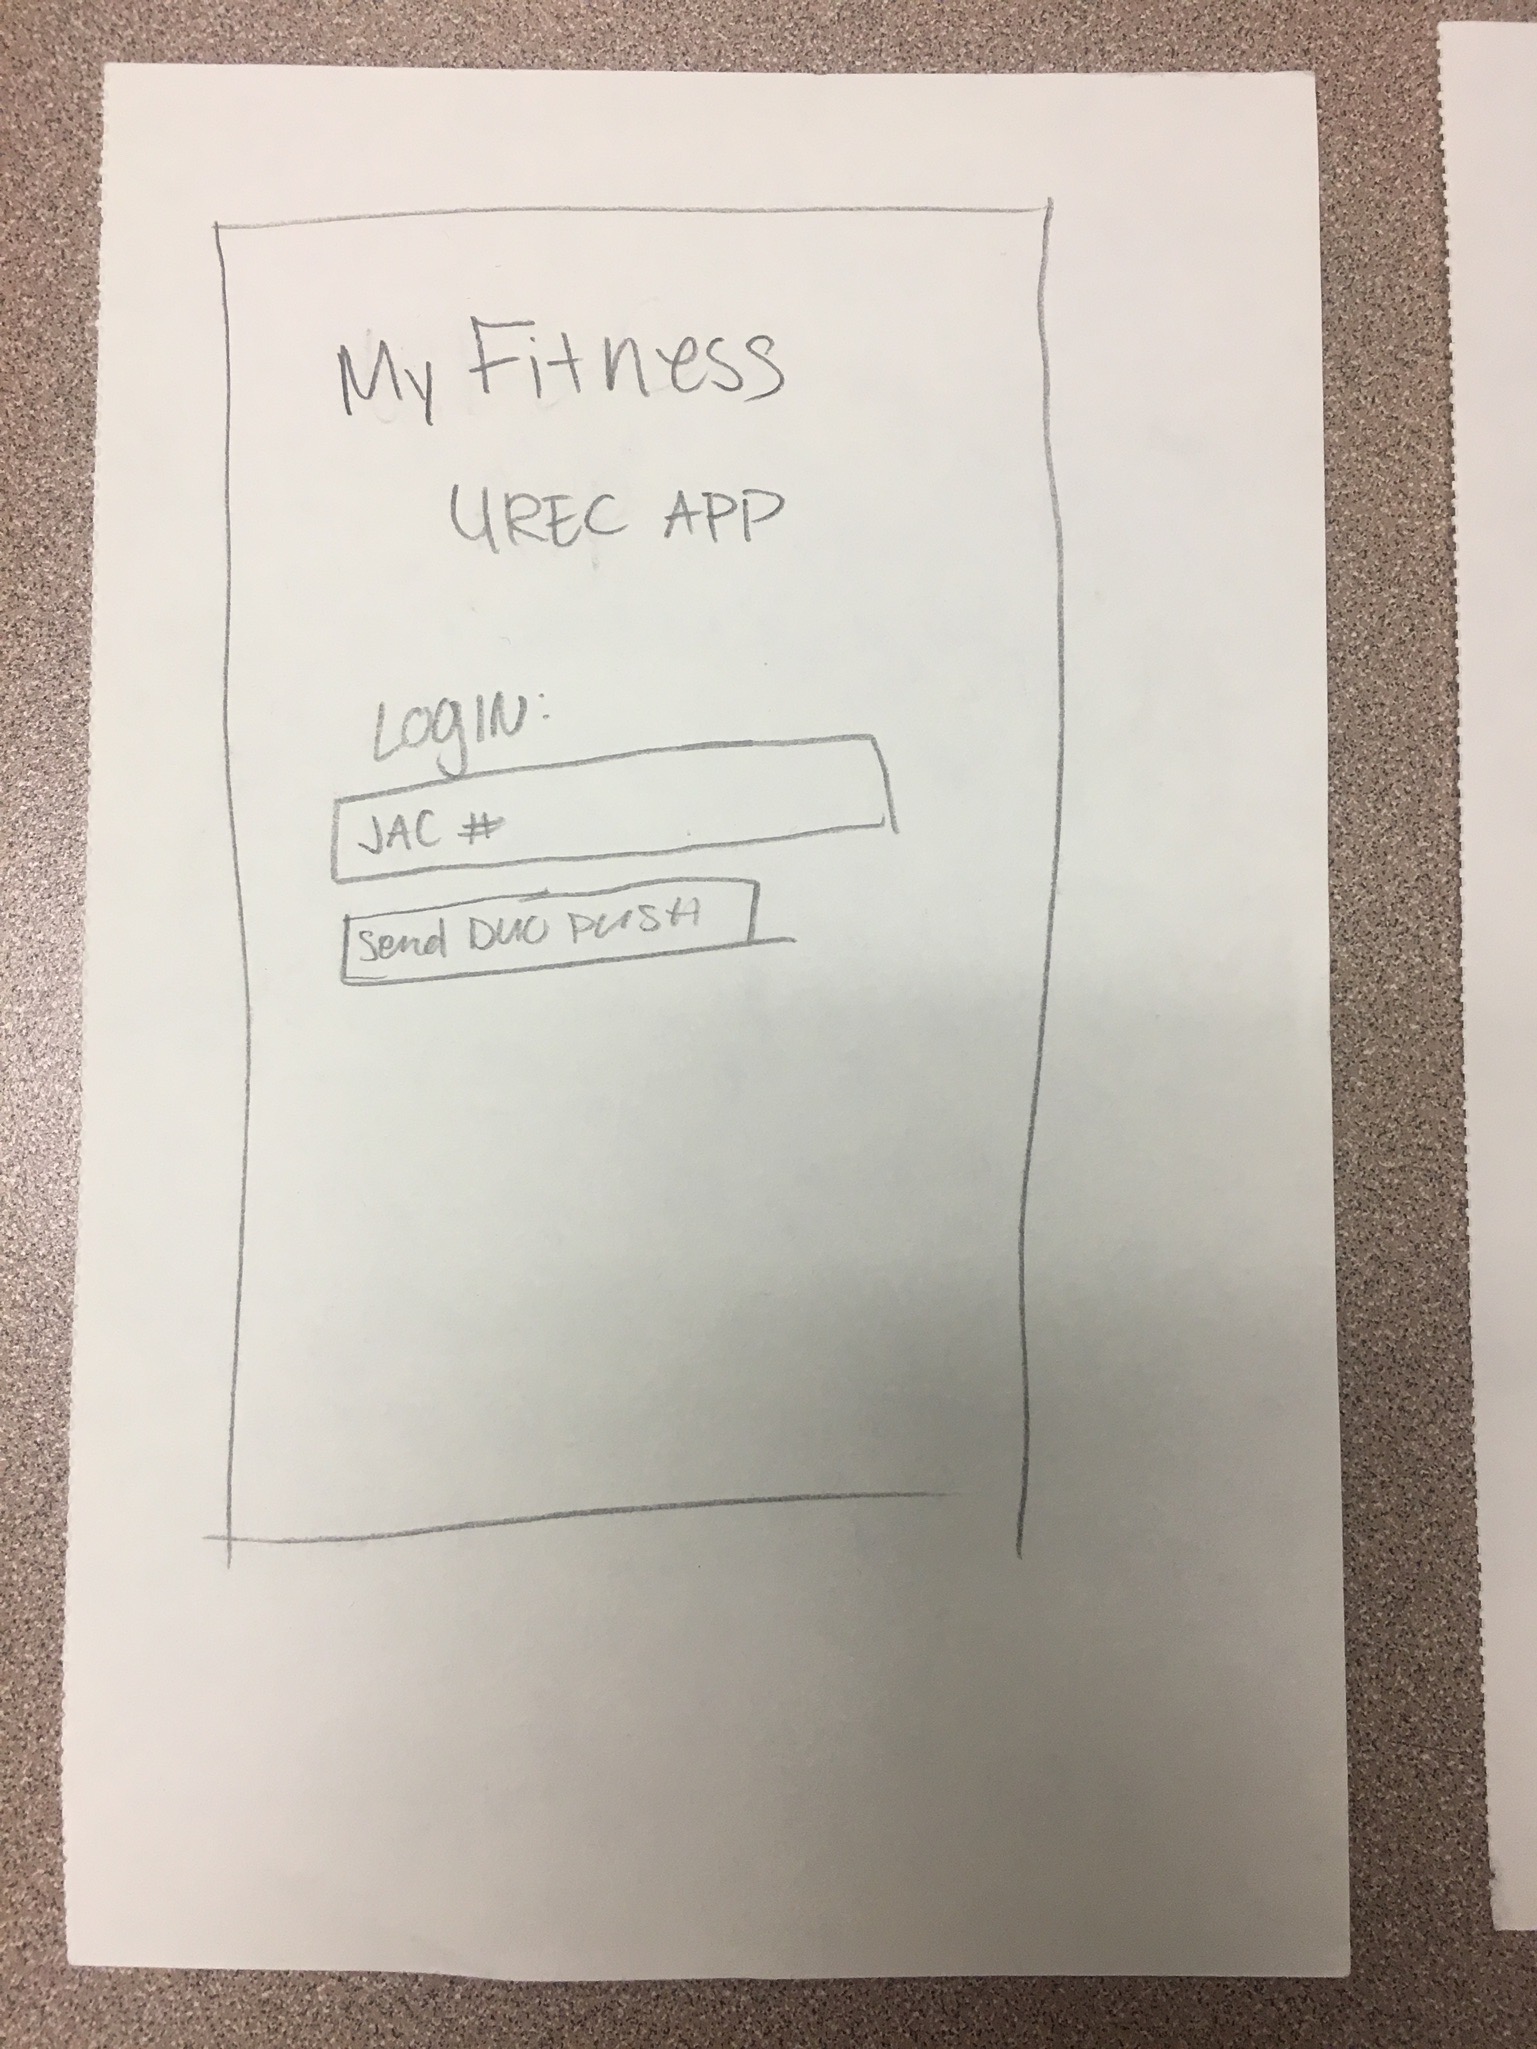 My Fitness
UREC APP
LOGIN:
JAC #
Send DUO PUSH